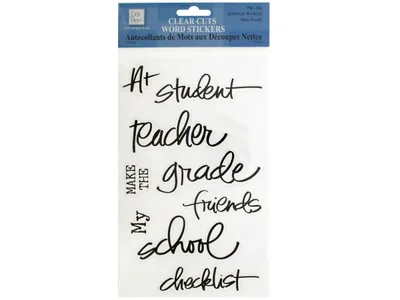 CLEAR CUTS
WORD STICKERS
Autocollants de Mots aux Découpes Nettes
A+
student
teacher
MAKE THE
grade
friends
My
school
checklist